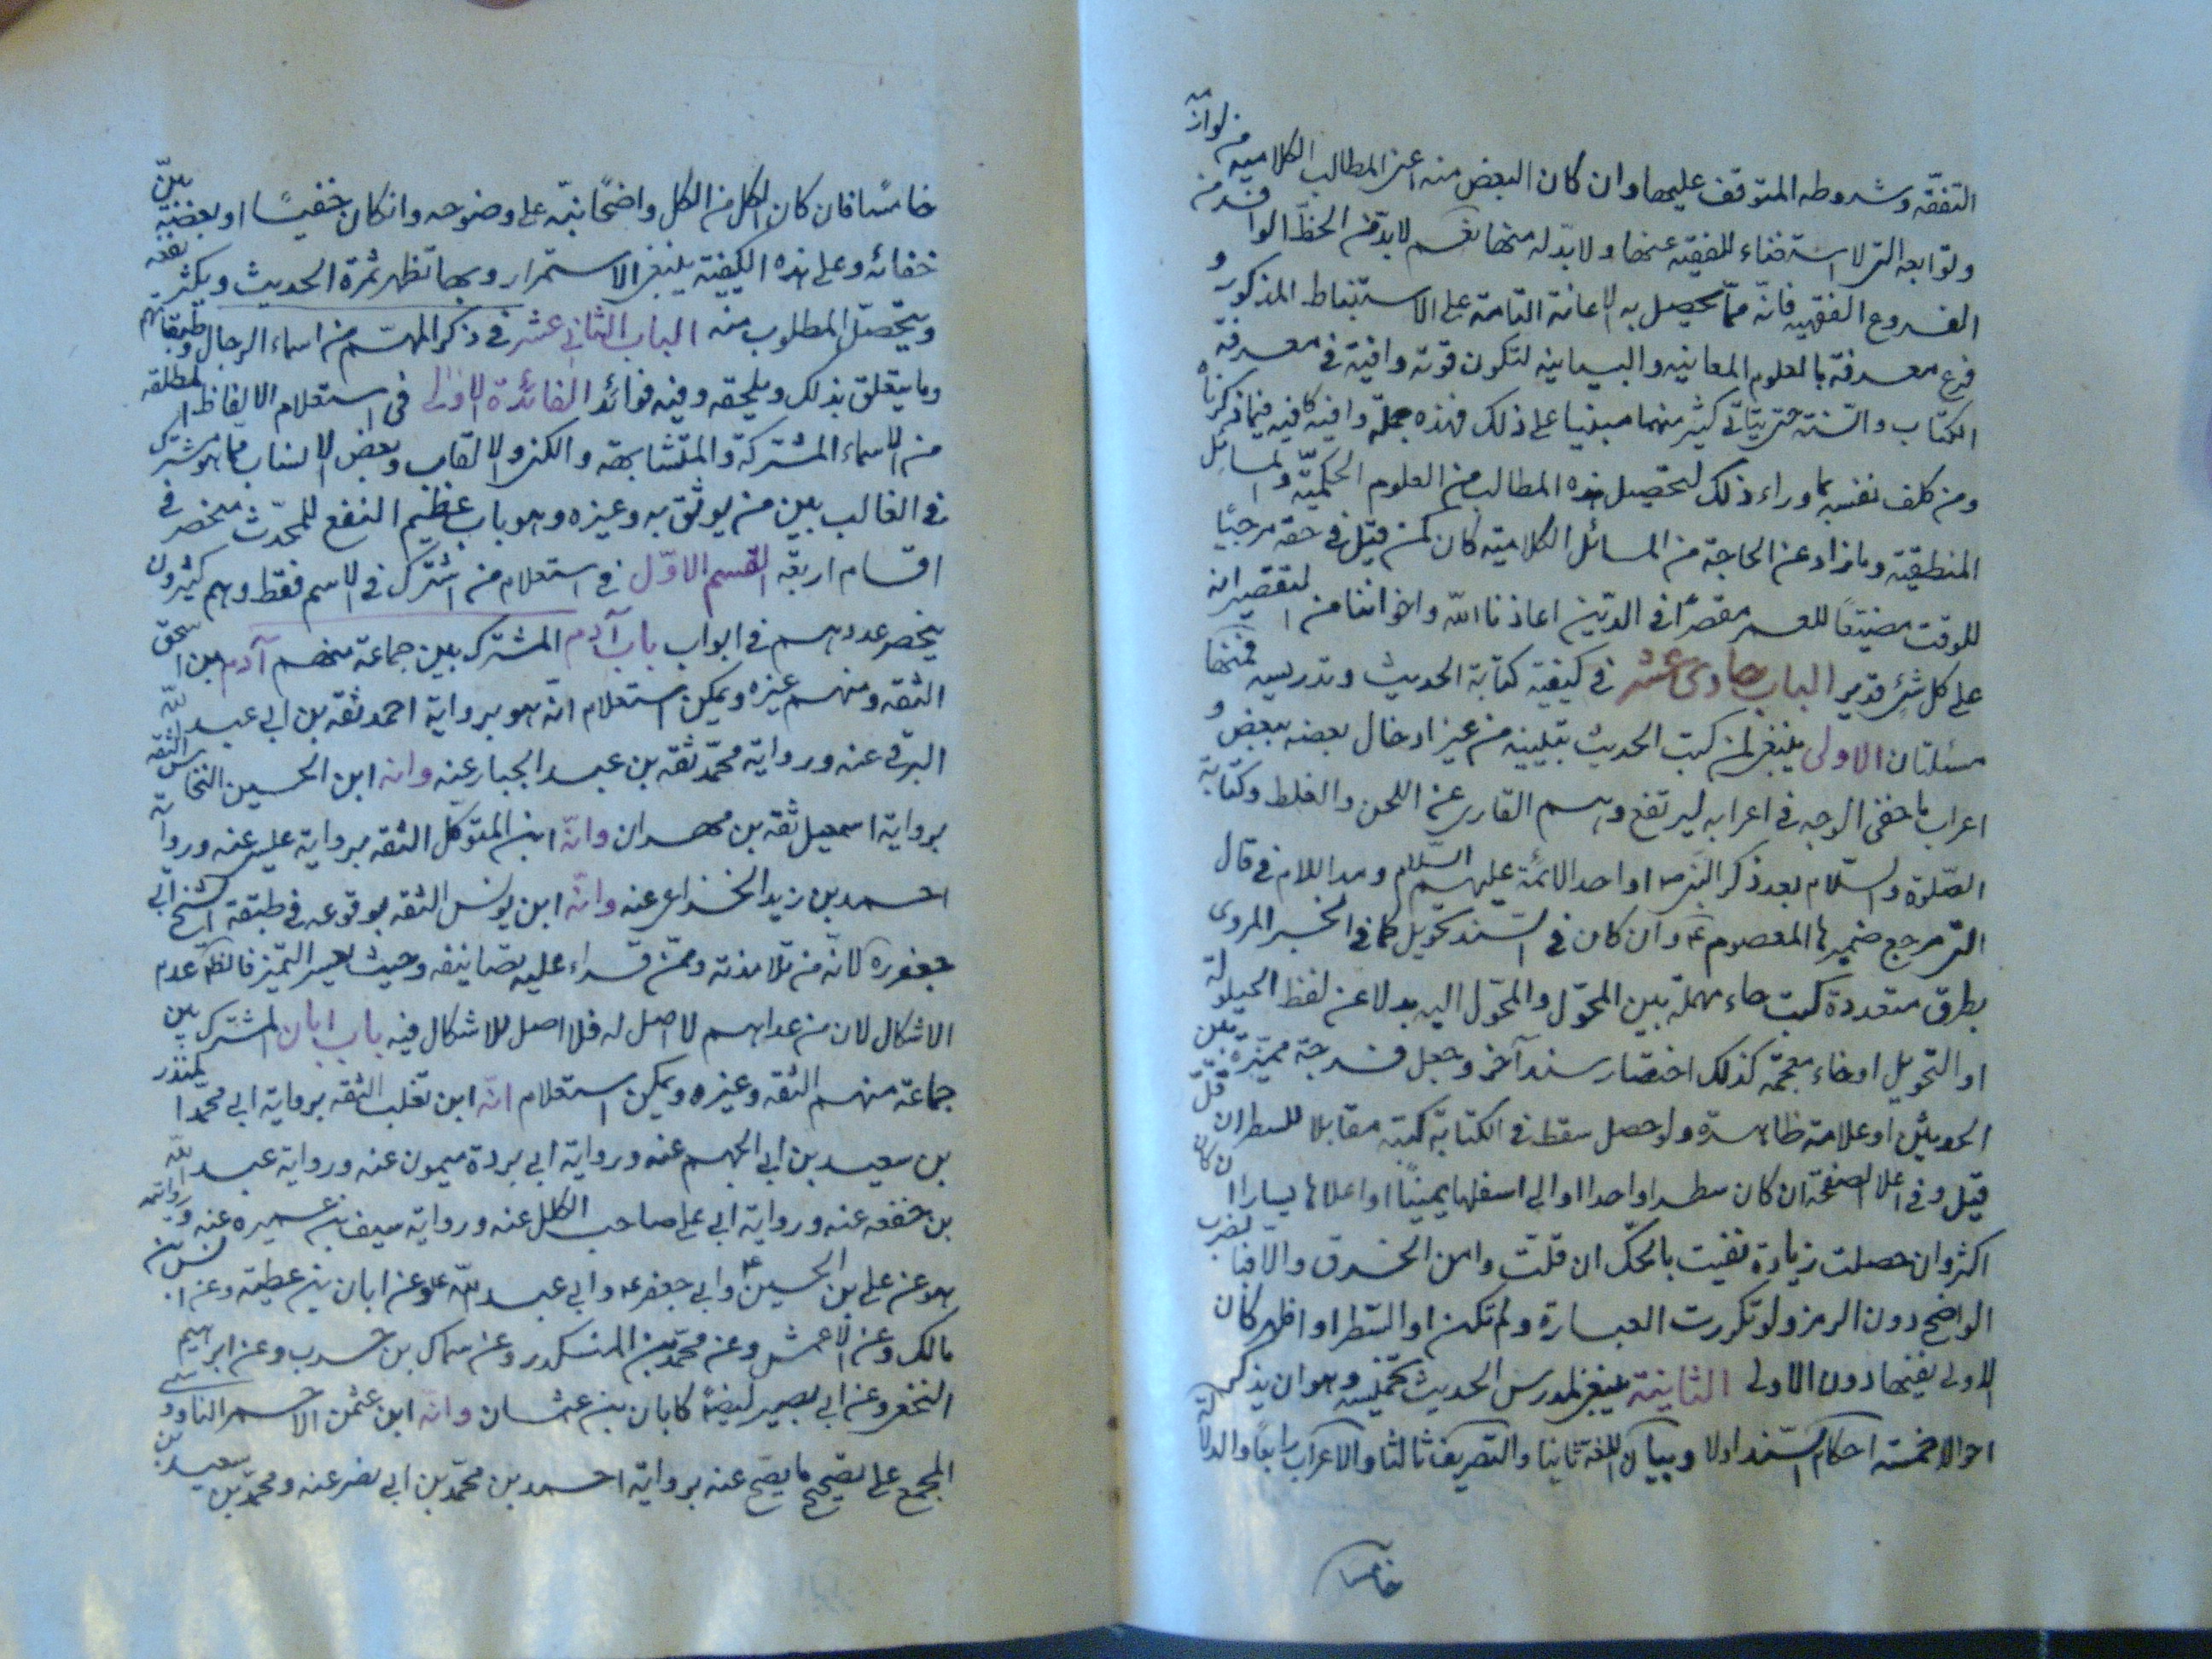 التفقّه وشروطه المتوقف عليها وان كان البعض منه اعنى المطالب الكلاميه من لوازمه
وتوابعه التى لا استغناء للفقيه عنها ولا بدّ له منها نعم لا بدّ من الحظّ الوافر من
الفروع الفقهيه فانّه ممّا يحصل به الاعانة التامة على الاستنباط المذكور و
فرع معرفة بالعلوم المعانيه والبيانيه لتكون قوته وافية فى معرفة
الكتاب والسّنة حتى يتأتى كثير منهما مبنيا على ذلك فهذه جملة وافيه كافيه فيما ذكرناه
ومن كلف نفسه بما وراء ذلك لتحصيل هذه المطالب من العلوم الحكميّة والمسائل
المنطقية وما زاد عن الحاجة من المسائل الكلامية كان كمن قيل فى حقه مرجيًا
للوقت مضيّعًا للعمر مقصرًا فى الدّين اعاذنا الله واخواننا من التقصير انه
على كل شئ قدير الباب حادى عشر فى كيفية كتابة الحديث وتدريسه فمنها
مسئلتان الاولى ينبغى لمن كتب الحديث تبيينه من غير ادخال بعضه ببعض و
اعراب ما خفى الوجه فى اعرابه ليرتفع وهم القارى عن اللحن والغلط وكتابة
الصّلوة والسّلام بعد ذكر النبى ص او احد الائمّة عليهم السّلام ومد اللام فى قال
التى مرجع ضميرها المعصوم ع وان كان فى السّند تحويل كما فى الخبر المروى
بطرق متعددة كتب حاء مهملة بين المحوّل والمحوّل اليه بدلا عن لفظ الحيلولة
او التحويل او خاء معجمة كذلك اختصار سند آخر وجعل فرجة مميّزة بين
الحديثين او علامة ظاهرة ولو حصل سقط فى الكتابة كتبته مقابلا للسطر ان قلّ
قيل وفى اعلا الصفحة ان كان سطرا واحدا او الى اسفلها يمينًا او اعلاها يسارا ان كان
اكثر وان حصلت زيادة نفيت بالحكّ ان قلّت وامن الخرق والا فبالضرب
الواضح دون الرمز ولو تكررت العبارة ولم تكن اوّل السّطر او اظهر كان
الاولى بقينها دون الاولى الثانية ينبغى لمدرس الحديث تخميسه وهو ان يذكر
احوالا خمسة احكام السّند اولا وبيان اللغة ثانيا والتصريف ثالثا والاعراب رابعًا والدلالة
خامسا
خامسًا فان كان الكل من الكل واضحًا نبّه على وضوحه وان كان خفيًا او بعضه بيّن
خفائه وعلى هذه الكيفية ينبغى الاستمرار وبها تظهر ثمرة الحديث ويكثر نفعه
ويتحصّل المطلوب منه الباب الثانى عشر فى ذكر المهمّ من اسماء الرجال وطبقاتهم
وما يتعلق بذلك ويلحقه وفيه فوائد الفائدة الاولى فى استعلام الالفاظ المطلقه
من الاسماء المشتركة والمتشابهة والكنى والالقاب وبعض الانساب مما هو مشترك
فى الغالب بين من يوثق به وغيره وهو باب عظيم النفع للمحدّث منحصر فى
اقسام اربعة القسم الاوّل فى استعلام من اشترك فى الاسم فقط وهم كثيرون
ينحصر عددهم فى ابواب باب آدم المشترك بين جماعة منهم آدم بن اسحق
الثقه ومنهم غيره ويمكن استعلام انّه هو برواية احمد ثقه بن ابى عبد الله
البرقى عنه ورواية محمّد ثقه بن عبد الجبار عنه وانه ابن الحسين النخاس الثقه
برواية اسمعيل ثقه بن مهران وانّه ابن المتوكّل الثقه برواية عليس عنه ورواية
احمد بن زيد الخزاعى عنه وانّه ابن يونس الثقه بوقوعه فى طبقة الشيخ ابى
جعفر ره لانّه من تلامذته وممّن قراء عليه تصانيفه وحيث يعسر التميز فالظ عدم
الاشكال لان من عداهم لا اصل له فلا اصل للاشكال فيه باب ابان المشترك بين
جماعة منهم الثقه وغيره ويمكن استعلام انّه ابن تغلب الثقه برواية ابى محمد المنذر
بن سعيد بن ابى الجهم عنه ورواية ابى بردة ميمون عنه ورواية عبد الله
بن خفقه عنه ورواية ابى على صاحب الكلل عنه ورواية سيف بن عميره عنه وروايته
هو عن على بن الحسين ع وابى جعفر ع وابى عبد الله ع وعن ابان بن عطيه وعن انس بن
مالك وعن الاعمش وعن محمّد بن المنكدر وعن سماك بن حرب وعن ابراهيم
النخعى وعن ابى بصير ايضًا كابان بن عثمان وانّه ابن عثمن الاحمر الناووسى
المجمع على تصحيح ما يصح عنه برواية احمد بن محمّد بن ابى نصر عنه ومحمّد بن سعيد بن